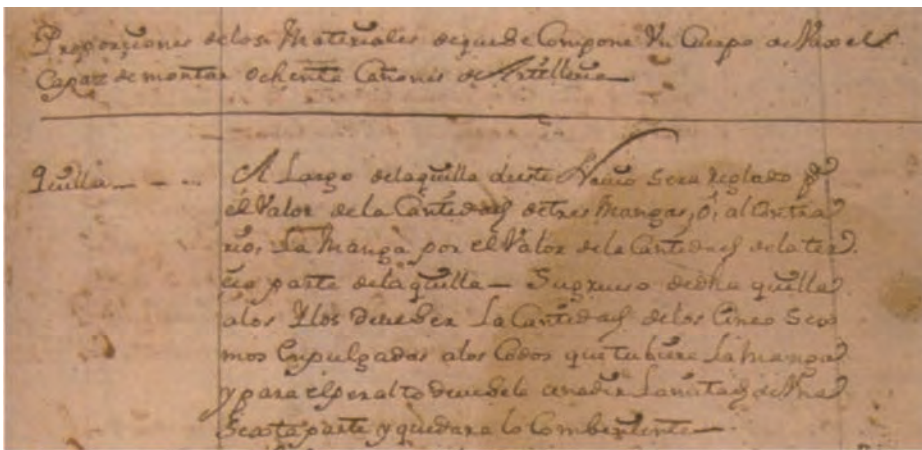 Proporçiones delos Materiales deque se Compone Vn Cuerpo de Vaxel
Capaz de montar ochenta Cañones de Artilleria
Quilla
El Largo dela quilla deeste Navio sera Reglado por
el Valor dela Cantidad detres Mangas, ó, al Contra
rio, La Manga por el Valor dela Cantidad dela ter
cia parte dela quilla — Sugrueso dedha quilla
alos Deveser La Cantidad delos Cinco Sexs
mos Enpulgadas alos Codos quetubiere La manga
y para elperalto devesele anadir Lamitad deVna
Sexta parte y quedara lo Combeniente